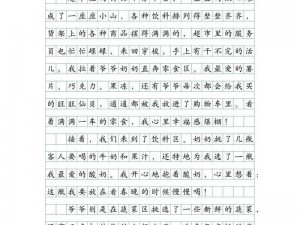 成了一座座小山，各种饮料排列得整整齐齐，
货架上的各种商品摆得满满当当。超市里的服务
员也忙忙碌碌，来回穿梭，手上有干不完的活
儿。我拉着爷爷奶奶直奔零食区。我最爱的薯
片、巧克力、果冻，还有爷爷每次都会给我买
的旺旺仙贝，通通都被我放进了购物车里。看
着满满一车的零食，我心里幸福爆棚。
接着，我们来到了饮料区。奶奶挑了几瓶
客人要喝的牛奶和果汁，还特地为我选了一瓶
我最爱的酸奶，我开心地抱着酸奶，心里想着：
这瓶我要放在看春晚的时候慢慢喝！
爷爷则是在蔬菜区挑选了一些新鲜的蔬菜，